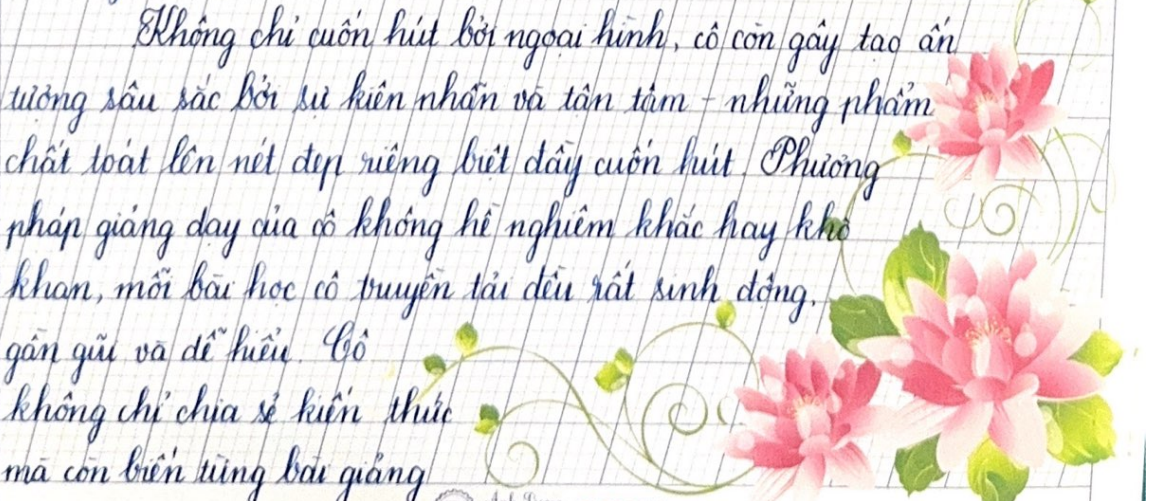 Không chỉ cuốn hút bởi ngoại hình, cô còn gây tạo ấn
tượng sâu sắc bởi sự kiên nhẫn và tận tâm - những phẩm
chất toát lên nét đẹp riêng biệt đầy cuốn hút. Phương
pháp giảng dạy của cô không hề nghiêm khắc hay khô
khan, mỗi bài học cô truyền tải đều rất sinh động,
gần gũi và dễ hiểu. Cô
không chỉ chia sẻ kiến thức
mà còn biến từng bài giảng